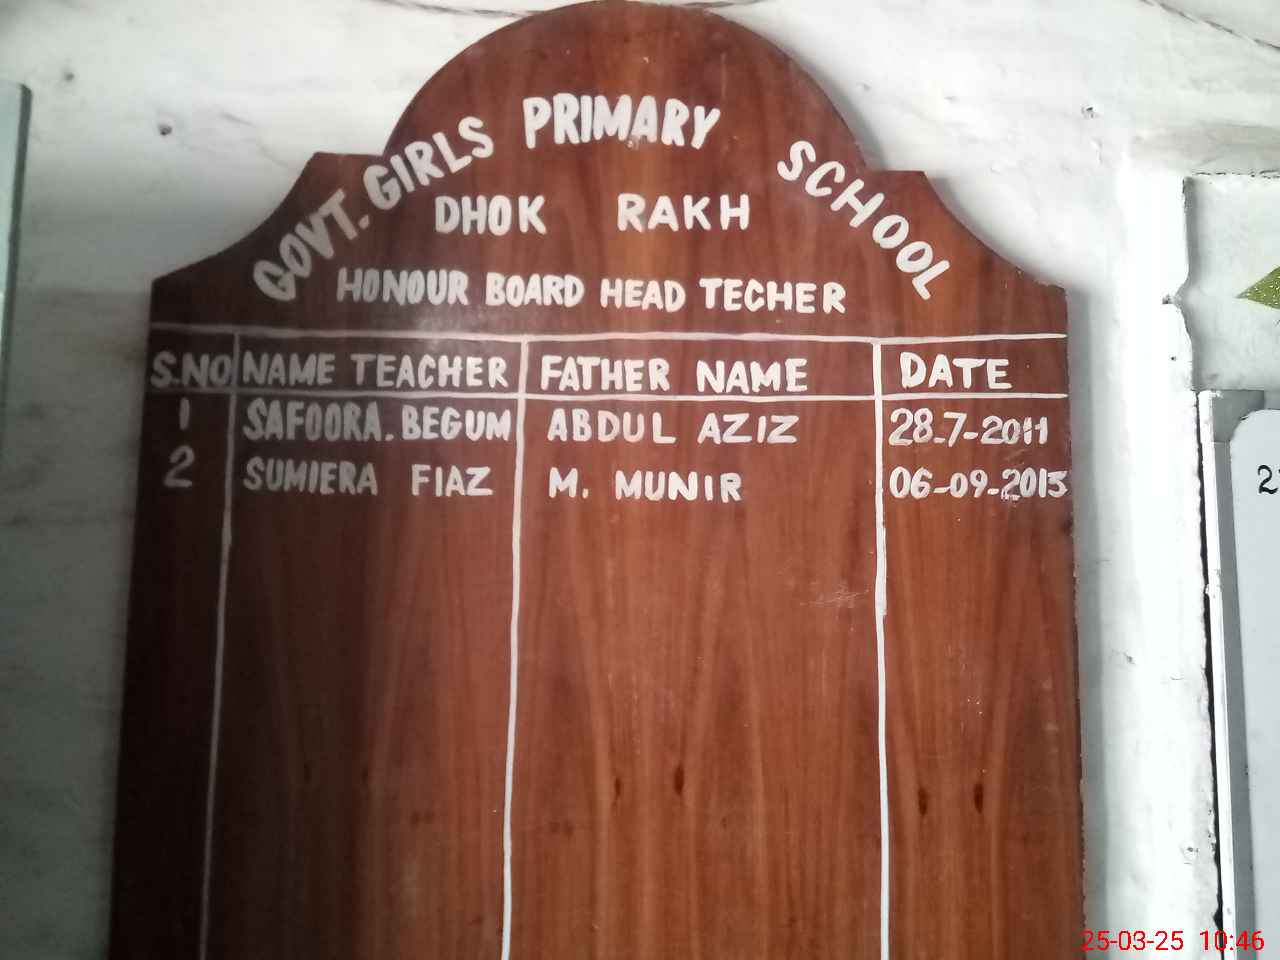 GOVT. GIRLS PRIMARY SCHOOL
DHOK RAKH
HONOUR BOARD HEAD TECHER
S.NO NAME TEACHER FATHER NAME DATE
1 SAFOORA. BEGUM ABDUL AZIZ 28.7-2011
2 SUMIERA FIAZ M. MUNIR 06-09-2015
25-03-25 10:46